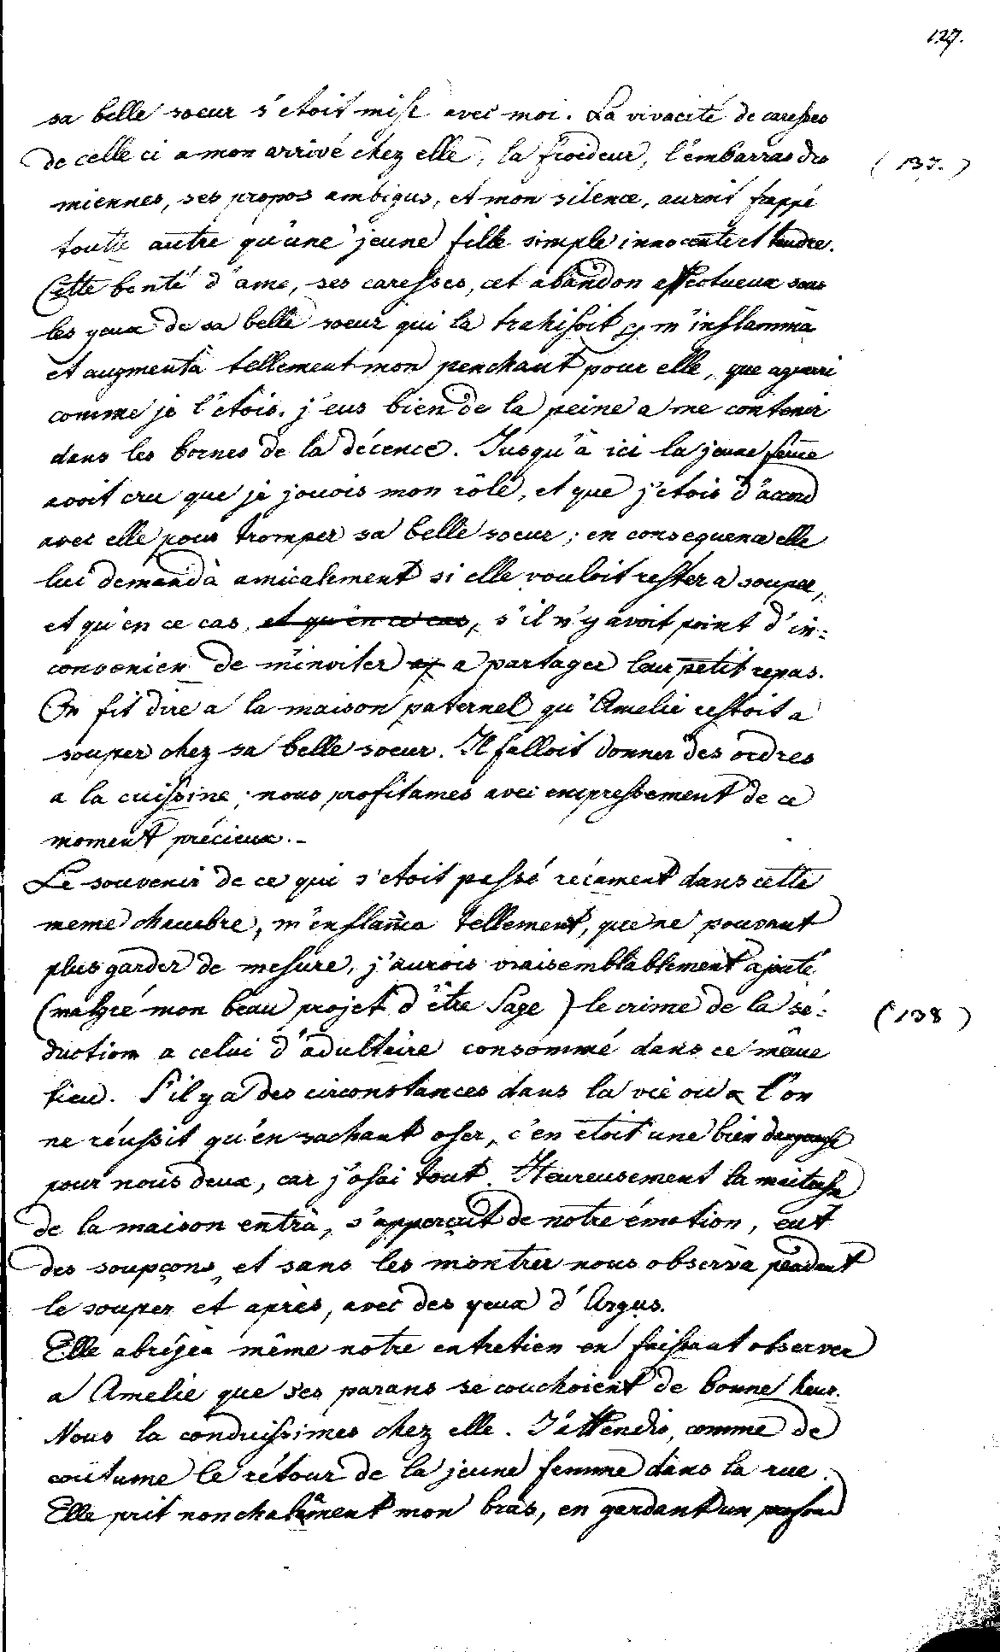 127.
sa belle soeur s'etoit mise avec moi. La vivacité de caresses
de celle ci a mon arrivé chez elle, la froideur, l'embarras des
(137.)
miennes, ses propos ambigus, et mon silence, auroit frappé
toute autre qu'une jeune fille simple innocente et tendre.
Cette bonté d'ame, ses caresses, cet abandon affectueux sous
les yeux de sa belle soeur qui la trahisoit m'inflamma
et augmenta tellement mon penchant pour elle, que aguerri
comme je l'étois, j'eus bien de la peine a me contenir
dans les bornes de la décence. Jusqu'à ici la jeune feme
avoit cru que je jouois mon rôle, et que j'etois d'accord
avec elle pour tromper sa belle soeur; en consequence elle
lui demanda amicalement si elle vouloit rester a souper,
et qu'en ce cas, et qu'en ce cas, s'il n'y avoit point d'in=
convenien de m'inviter a partager leur petit repas.
On fit dire a la maison paternel qu'Amelie restoit a
souper chez sa belle soeur. Il falloit donner des ordres
a la cuissine; nous profitames avec empressement de ce
moment précieux. -
Le souvenir de ce qui s'etoit passé récament dans cette
meme chambre, m'enflama tellement, que ne pouvant
plus garder de mesure, j'aurois vraisemblablement ajouté
(malgré mon beau projet d'être sage) le crime de la sé=
(138)
duction a celui d'adultaire consommé dans ce même
lieu. S'il y a des circonstances dans la vie ou l'on
ne réussit qu'en sachant oser, c'en etoit une bien dangereuse
pour nous deux, car j'osai tout. Heureusement la maitresse
de la maison entra, s'apperçut de notre émotion, eut
des soupçons, et sans les montrer nous observa pendant
le souper et après, avec des yeux d'Argus.
Elle abrégea même notre entretien en faissant observer
a Amelie que ses parans se couchoient de bonne heur.
Nous la conduissimes chez elle. J'attendis, comme de
coûtume le rétour de la jeune femme dans la rue.
Elle prit nonchalâment mon bras, en gardant un profond